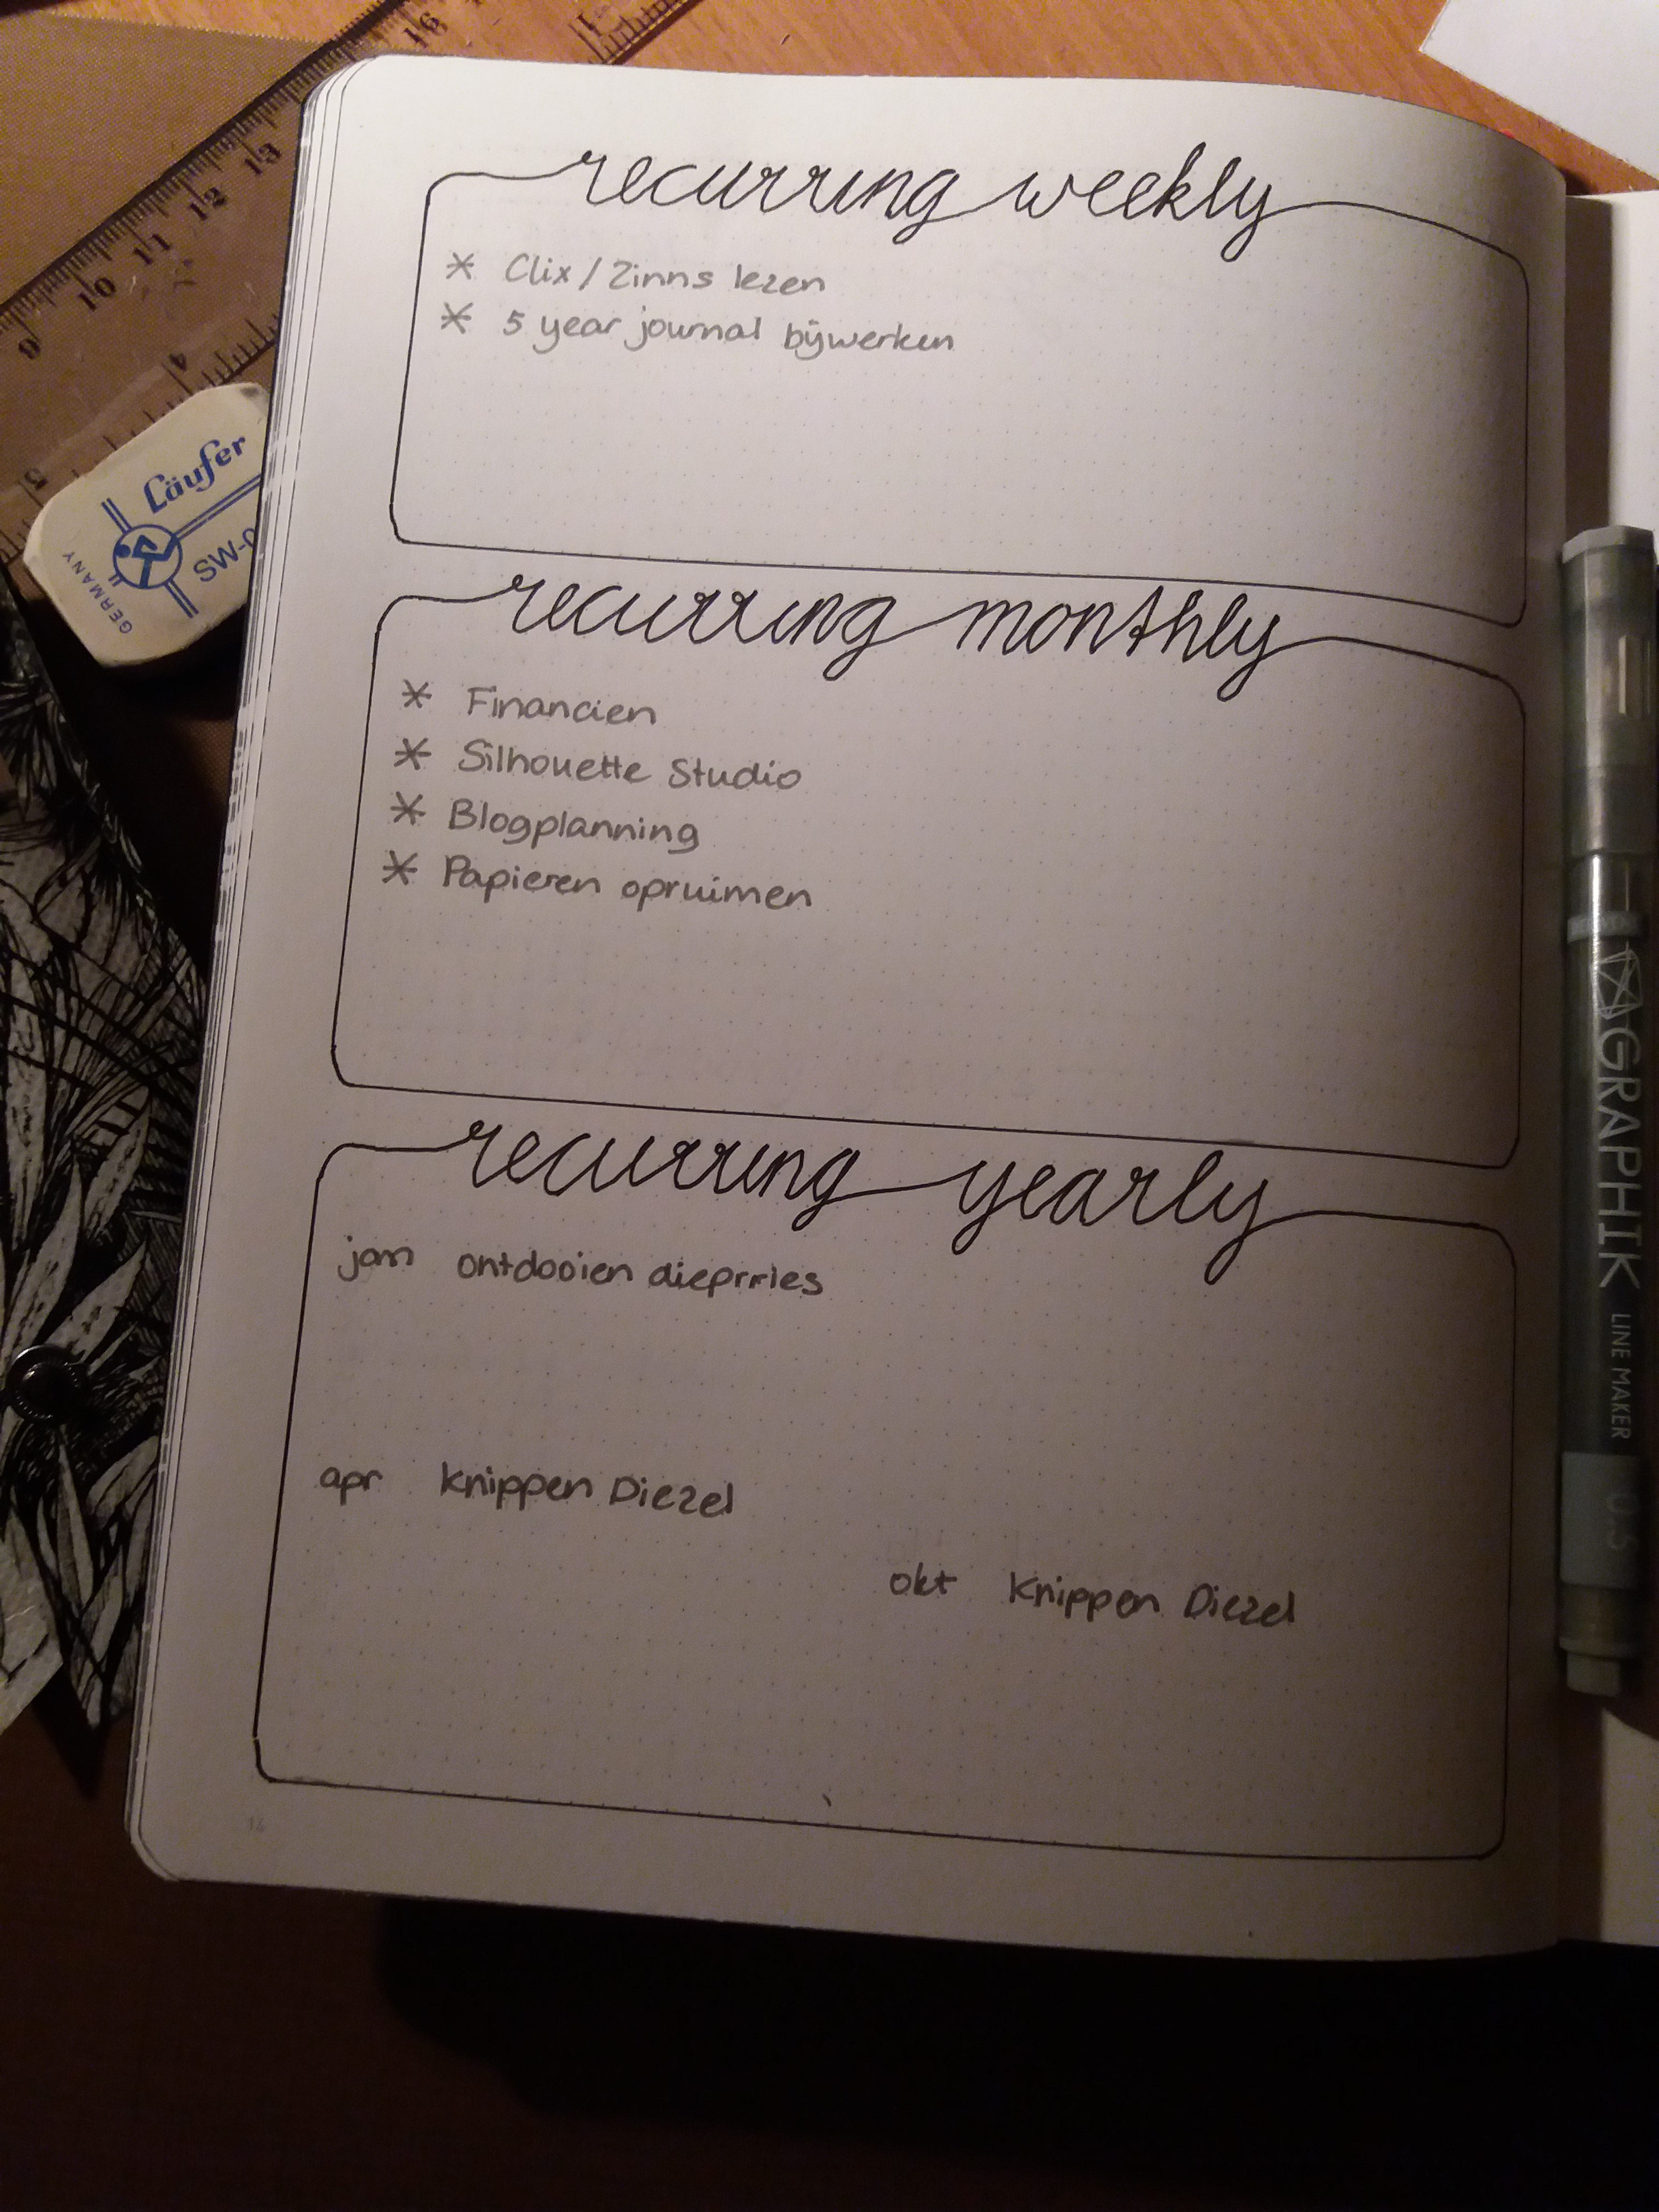 recurring weekly
* Clix / Zinns lezen
* 5 year journal bijwerken
recurring monthly
* Financien
* Silhouette Studio
* Blogplanning
* Papieren opruimen
recurring yearly
jan ontdooien dieprries
apr Knippen Diezel
okt Knippen Diezel
Läufer
GERMANY
GRAPHIK LINE MAKER 0.5
9 10 11 12 13 16
4
5
1